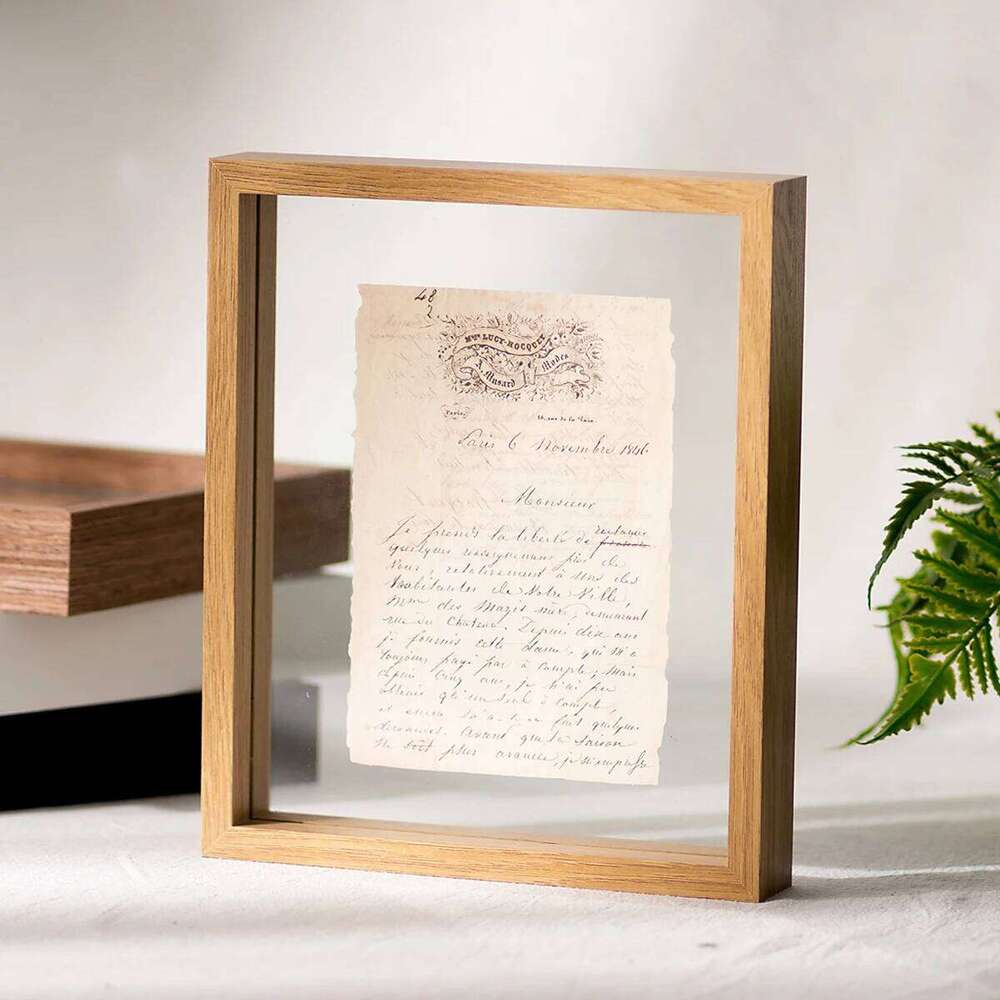 48
2.
Mme LUCY-HOCQUET
A. Musard Modes
Paris, rue de la Paix.
Paris 6 Novembre
Monsieur
Je prends la liberté de
quelques renseignemens près de
Vous, relativement à une des
habitantes de Notre Ville,
Mme des Mazis née, demeurant
rue du Chateau. Depuis dix ans
je fournis cette dame, qui m'a
toujours payé par à compte; mais
depuis Cinq ans, je n'ai pu
obtenir qu'un seul à Compte,
et encore a fait quelque
Avant que la saison
ne soit plus avancée, je